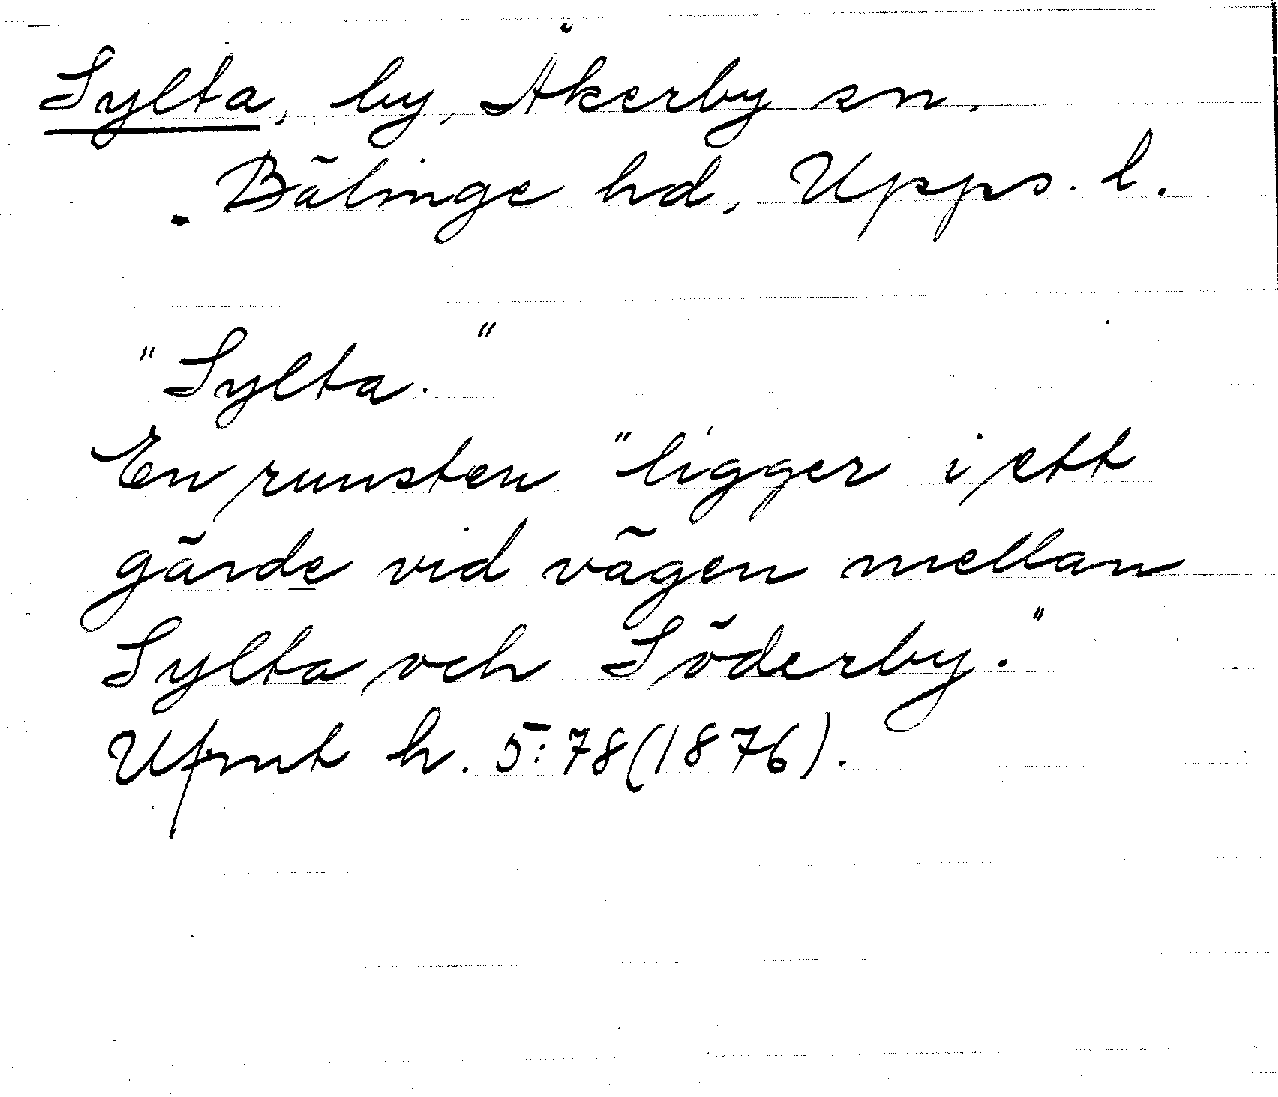 Sylta, by, Åkerby sn.
Bälinge hd, Upps. l.
"Sylta."
En runsten "ligger i ett
gärde vid vägen mellan
Sylta och Söderby."
Ufmt h. 5:78(1876).